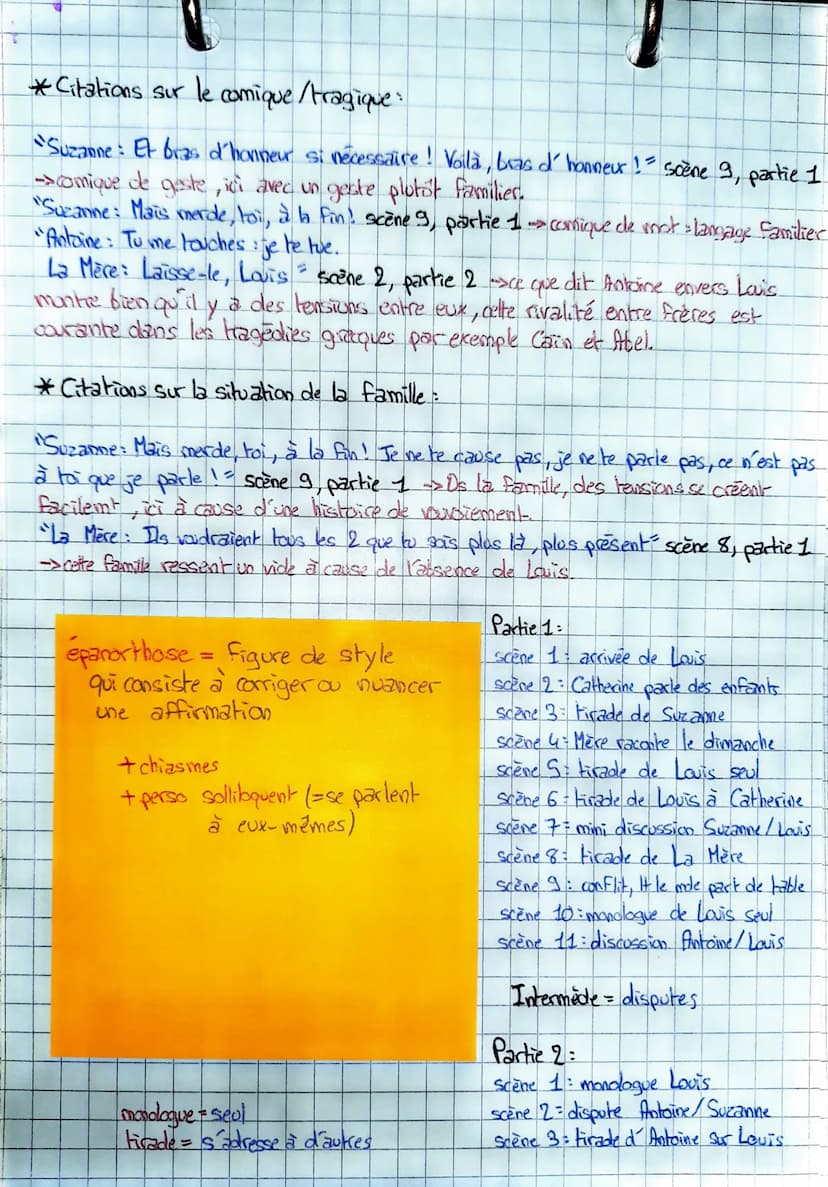 * Citations sur le comique/tragique:
"Suzanne: Et bras d'honneur si nécessaire! Voilà, bras d'honneur!" scène 9, partie 1
->comique de geste, ici avec un geste plutôt familier.
"Suzanne: Mais merde, toi, à la fin! scène 9, partie 1 -> comique de mot = langage familier
"Antoine: Tu me touches: je te tue.
La Mère: Laisse-le, Louis" scène 2, partie 2 ->ce que dit Antoine envers Louis
montre bien qu'il y a des tensions entre eux, cette rivalité entre frères est
courante dans les tragédies grecques par exemple Caïn et Abel.
* Citations sur la situation de la famille:
"Suzanne: Mais merde, toi, à la fin! Je ne te cause pas, je ne te parle pas, ce n'est pas
à toi que je parle!" scène 9, partie 1 -> Ds la famille, des tensions se créent
facilemt, ici à cause d'une histoire de vouvoiement.
"La Mère: Ils voudraient tous les 2 que tu sois plus là, plus présent" scène 8, partie 1
->cette famille ressent un vide à cause de l'absence de Louis.
épanorthose = figure de style
qui consiste à corriger ou nuancer
une affirmation
+ chiasmes
+ perso solliloquent (=se parlent
à eux-mêmes)
monologue = seul
tirade = s'adresse à d'autres
Partie 1:
scène 1: arrivée de Louis
scène 2: Catherine parle des enfants
scène 3: tirade de Suzanne
scène 4: Mère raconte le dimanche
scène 5: tirade de Louis seul
scène 6: tirade de Louis à Catherine
scène 7: mini discussion Suzanne/Louis
scène 8: tirade de La Mère
scène 9: conflit, tt le mde part de table
scène 10: monologue de Louis seul
scène 11: discussion Antoine/Louis
Intermède = disputes
Partie 2:
scène 1: monologue Louis
scène 2: dispute Antoine/Suzanne
scène 3: tirade d'Antoine sur Louis